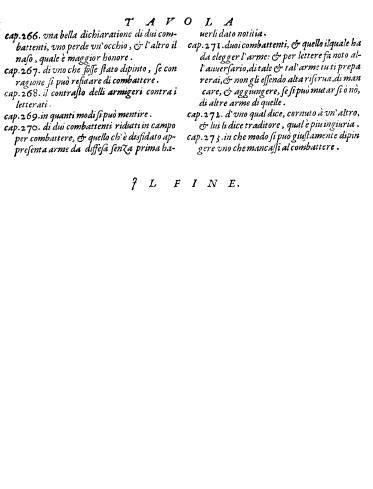 TAVOLA
cap.266. vna bella dichiaratione di dui com-
battenti, vno perde vn'occhio, & l'altro il
naso, quale è maggior honore.
cap.267. di vno che fosse stato dipinto, se con
ragione si può residar di combattere.
cap.268. il contrasto delli armigeri contra i
letterati.
cap.269. in quanti modi si può mentire.
cap.270. di dui combattenti ridutti in campo
per combattere, & quello ch'è disfidato ap-
presenta arme da diffesa senza prima ha-
uerli dato notitia.
cap.271. duoi combattenti, & quello il quale ha
da elegger l'arme: & per lettere fa noto al-
l'auuersario, di tale & tal'arme tu ti prepa
rerai, & non gli essendo alta riserua, di man
care, & aggungere, se si può mutar sì ò nò,
di altre arme di quelle.
cap.272. d'vno qual dice, cornuto à vn'altro,
& lui li dice traditore, qual'è piu ingiuria.
cap.273. in che modo si può giustamente dipin
gere vno che mancassi al combattere.
IL FINE.